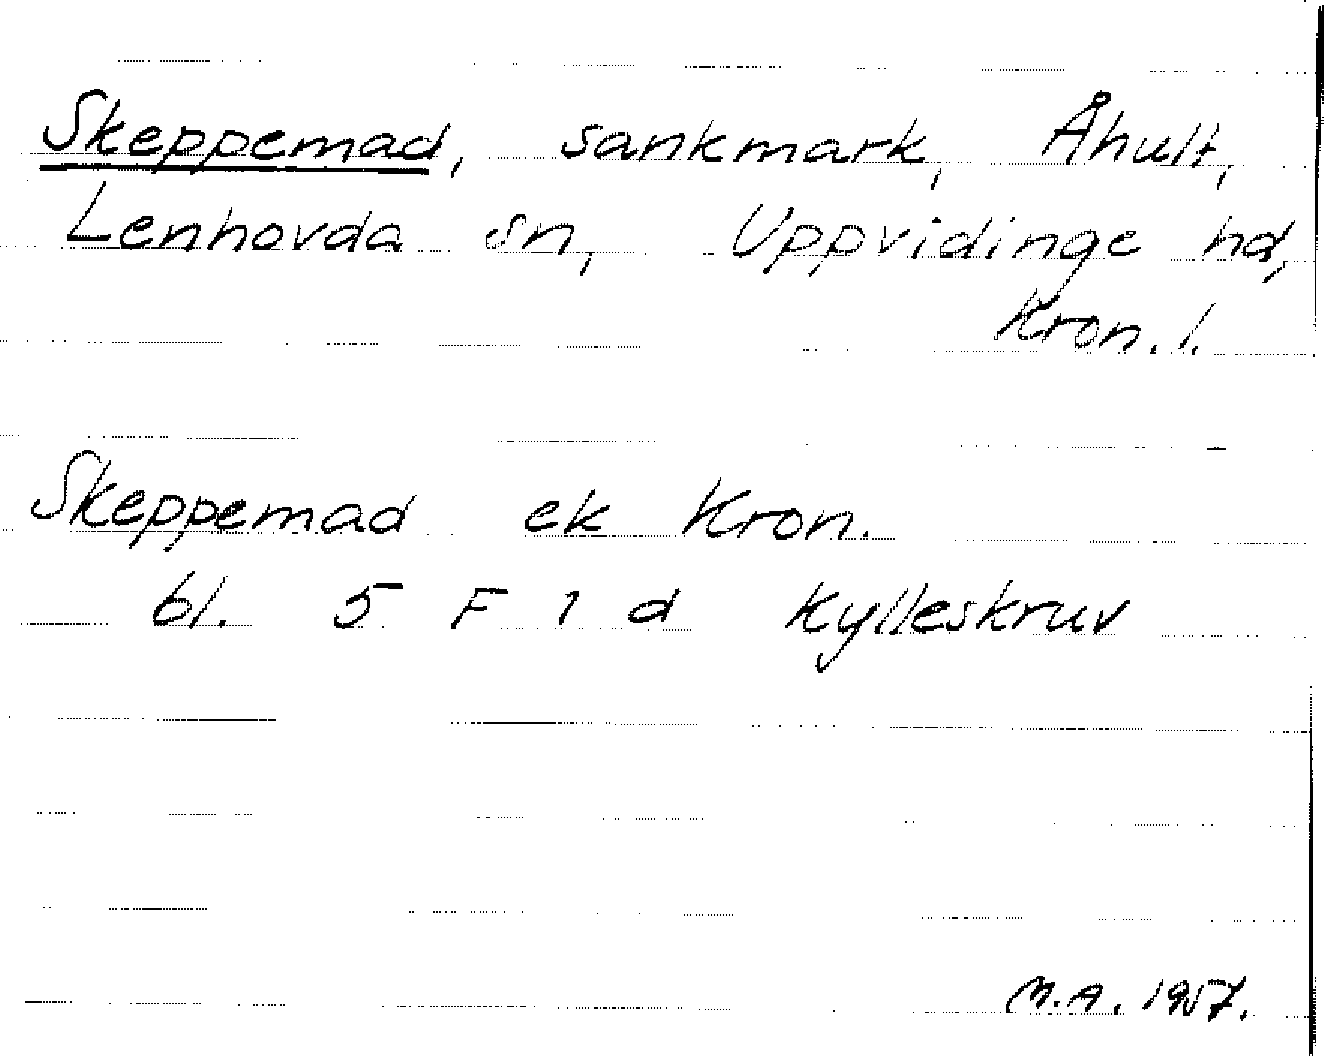 Skeppemad, sankmark, Åhult,
Lenhovda sn, Uppvidinge hd,
Kron. l.
Skeppemad ek Kron.
bl. 5 F 1 d Kylleskruv
M.A. 1957.